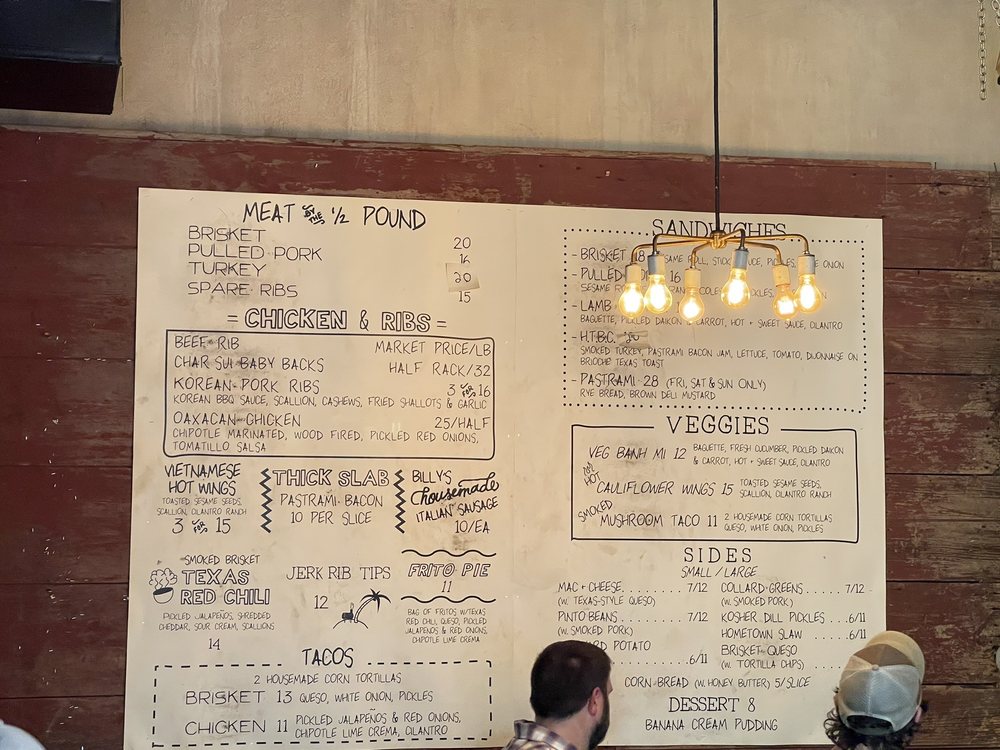 MEAT BY THE 1/2 POUND
BRISKET 20
PULLED PORK 16
TURKEY 20
SPARE RIBS 15
= CHICKEN & RIBS =
BEEF RIB MARKET PRICE/LB
CHAR SUI BABY BACKS HALF RACK/32
KOREAN PORK RIBS 3 FOR 16
KOREAN BBQ SAUCE, SCALLION, CASHEWS, FRIED SHALLOTS & GARLIC
OAXACAN CHICKEN 25/HALF
CHIPOTLE MARINATED, WOOD FIRED, PICKLED RED ONIONS,
TOMATILLO SALSA
VIETNAMESE
HOT WINGS
TOASTED SESAME SEEDS,
SCALLION, CILANTRO RANCH
3 FOR 15
THICK SLAB
PASTRAMI BACON
10 PER SLICE
BILLY'S
Chousemade
ITALIAN SAUSAGE
10/EA
SMOKED BRISKET
TEXAS
RED CHILI
PICKLED JALAPEÑOS, SHREDDED
CHEDDAR, SOUR CREAM, SCALLIONS
14
JERK RIB TIPS
12
FRITO PIE
11
BAG OF FRITOS W/TEXAS
RED CHILI, QUESO, PICKLED
JALAPENOS & RED ONIONS,
CHIPOTLE LIME CREMA
TACOS
2 HOUSEMADE CORN TORTILLAS
BRISKET 13 QUESO, WHITE ONION, PICKLES
CHICKEN 11 PICKLED JALAPEÑOS & RED ONIONS,
CHIPOTLE LIME CREMA, CILANTRO
SANDWICHES
- BRISKET 18 SESAME ROLL, STICKY SAUCE, PICKLES, ONION
- PULLED 16
SESAME PICKLES,
- LAMB
BAGUETTE, PICKLED DAIKON & CARROT, HOT + SWEET SAUCE, CILANTRO
- H.T.B.C. 20
SMOKED TURKEY, PASTRAMI BACON JAM, LETTUCE, TOMATO, DIJONNAISE ON
BRIOCHE TEXAS TOAST
- PASTRAMI 28 (FRI, SAT & SUN ONLY)
RYE BREAD, BROWN DELI MUSTARD
VEGGIES
VEG BANH MI 12 BAGUETTE, FRESH CUCUMBER, PICKLED DAIKON
& CARROT, HOT + SWEET SAUCE, CILANTRO
HOT CAULIFLOWER WINGS 15 TOASTED SESAME SEEDS,
SCALLION, CILANTRO RANCH
SMOKED MUSHROOM TACO 11 2 HOUSEMADE CORN TORTILLAS
QUESO, WHITE ONION, PICKLES
SIDES
SMALL / LARGE
MAC + CHEESE........ 7/12
(W. TEXAS-STYLE QUESO)
PINTO BEANS........ 7/12
(W. SMOKED PORK)
POTATO
..... 6/11
COLLARD GREENS..... 7/12
(W. SMOKED PORK)
KOSHER DILL PICKLES ...6/11
HOMETOWN SLAW ...6/11
BRISKET QUESO
(W. TORTILLA CHIPS)
CORN BREAD (W. HONEY BUTTER) 5/SLICE
DESSERT 8
BANANA CREAM PUDDING